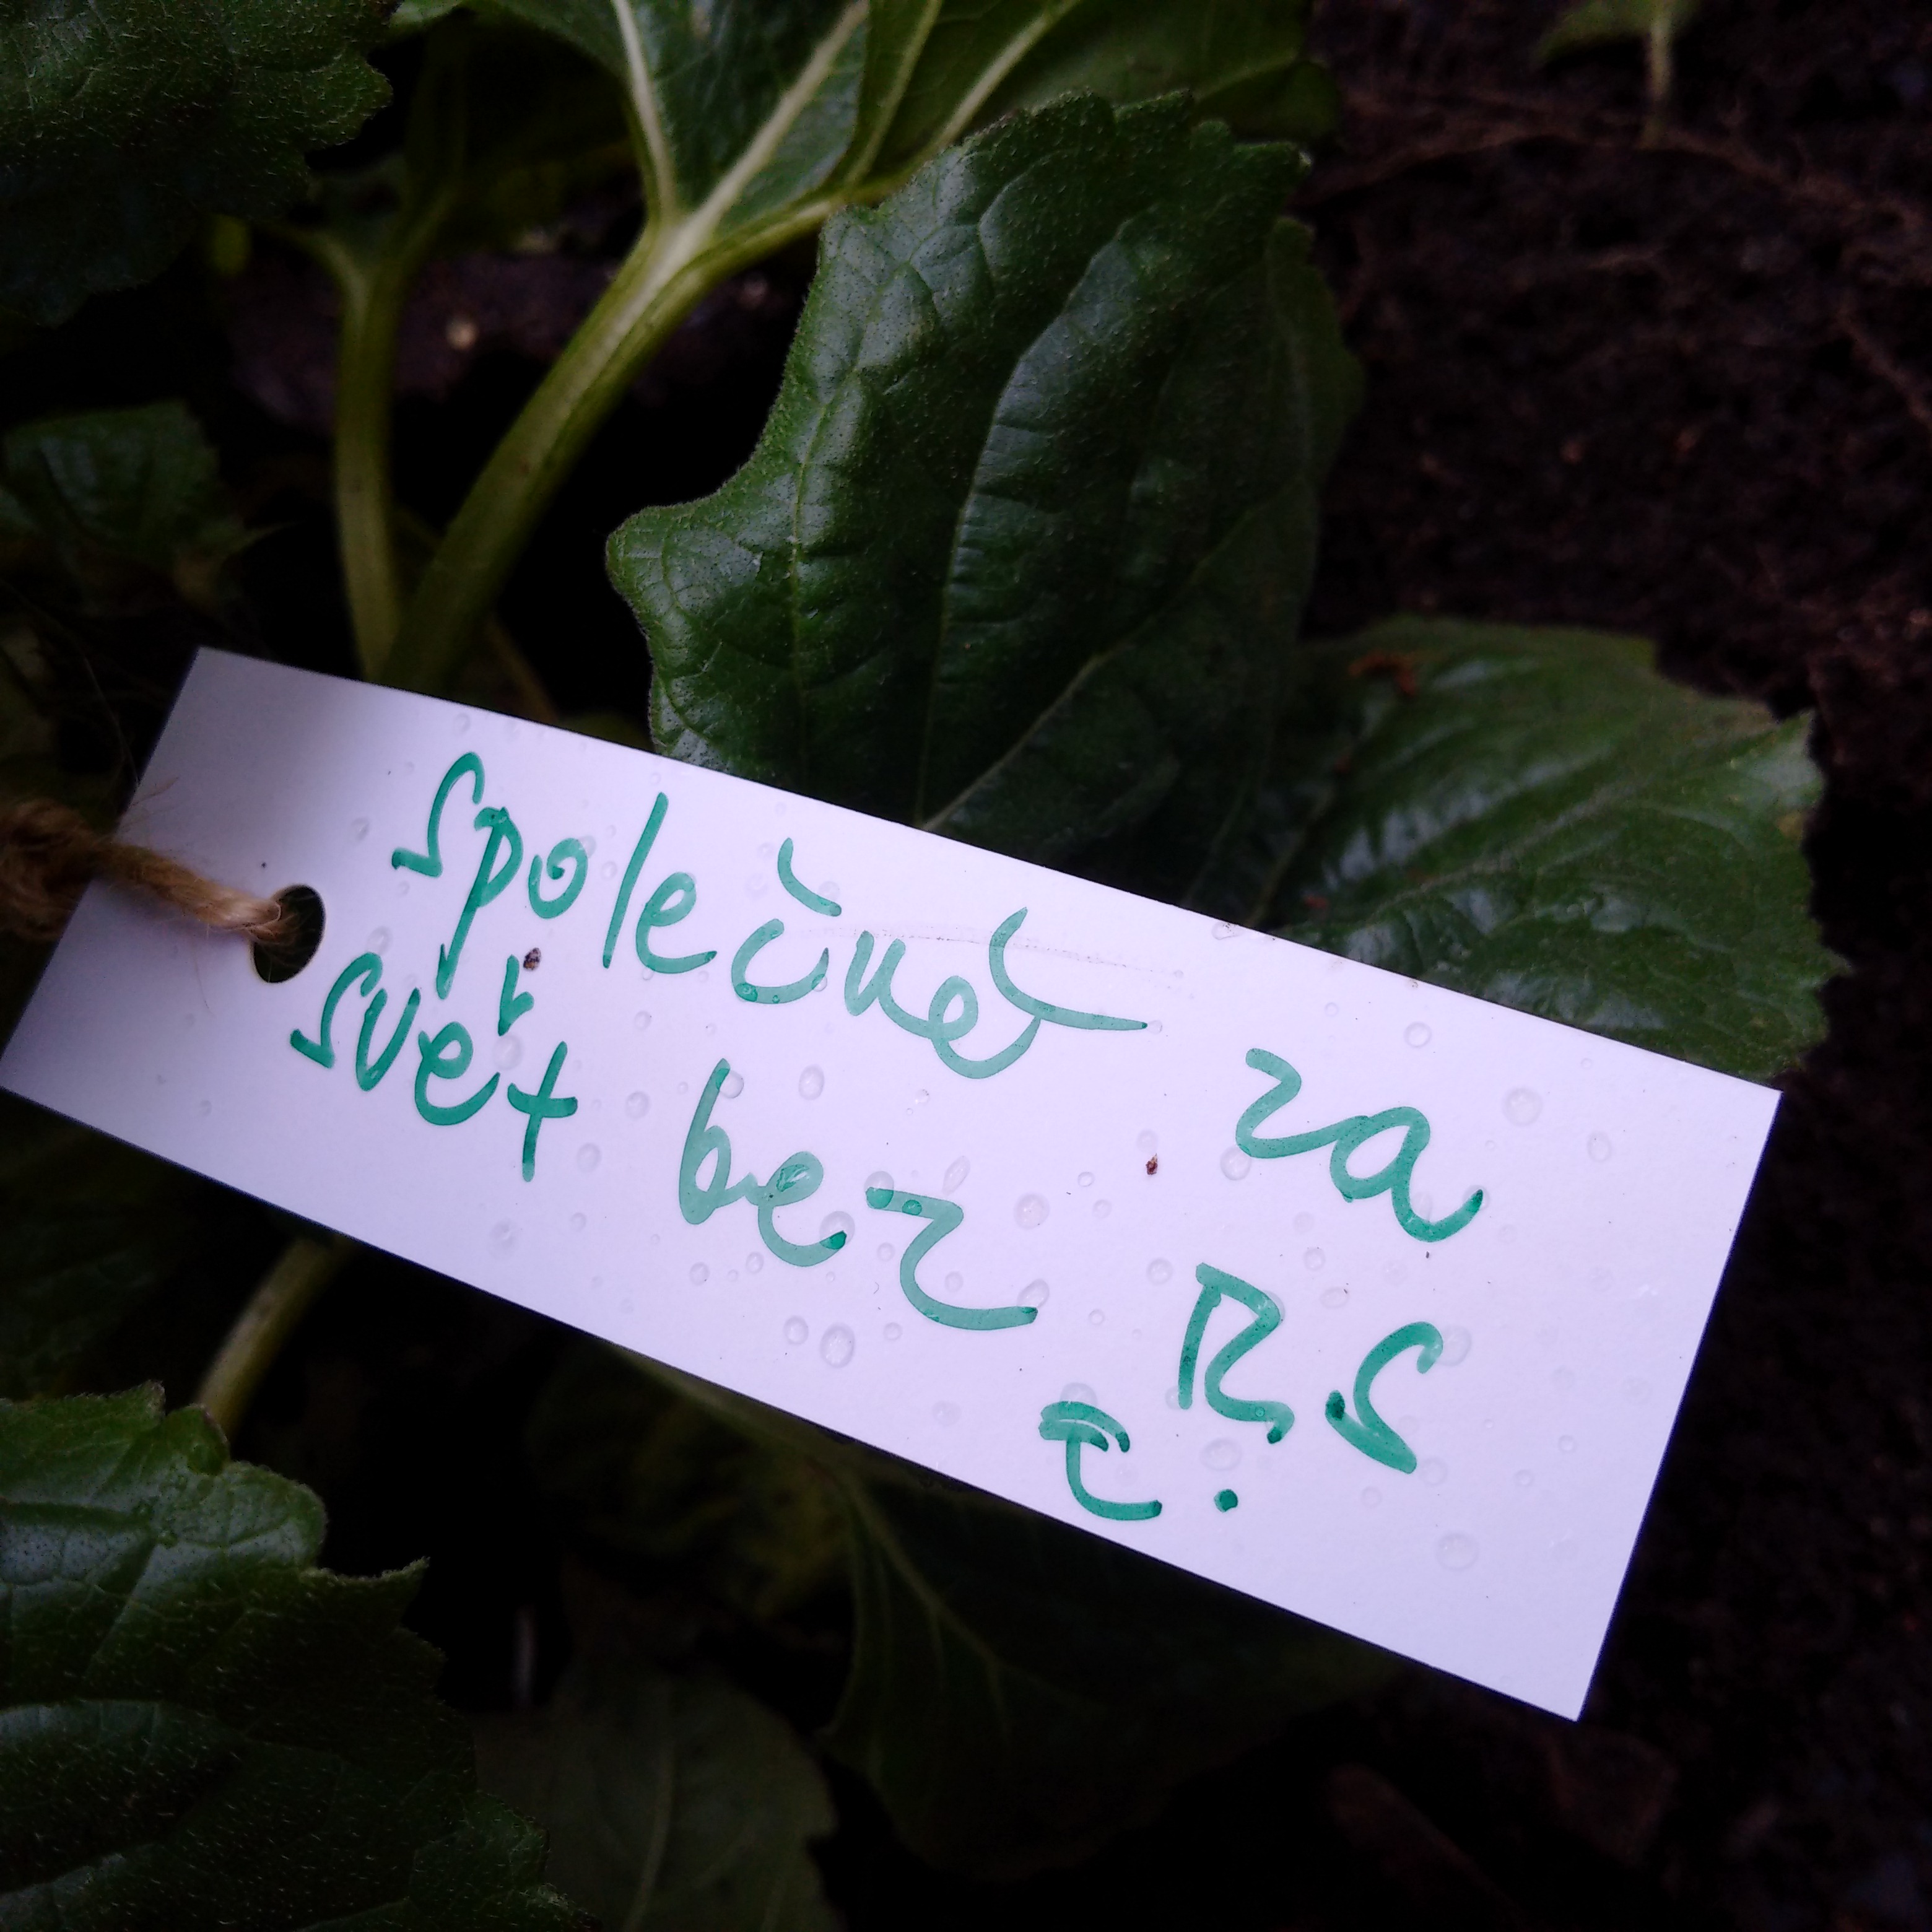 společně za
svět bez RS